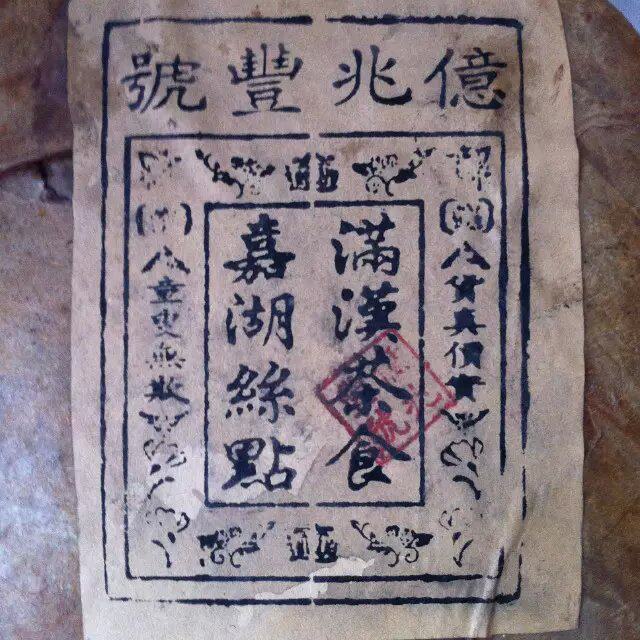 億兆豐號
貨真價實
滿漢茶食
嘉湖絲點
童叟無欺